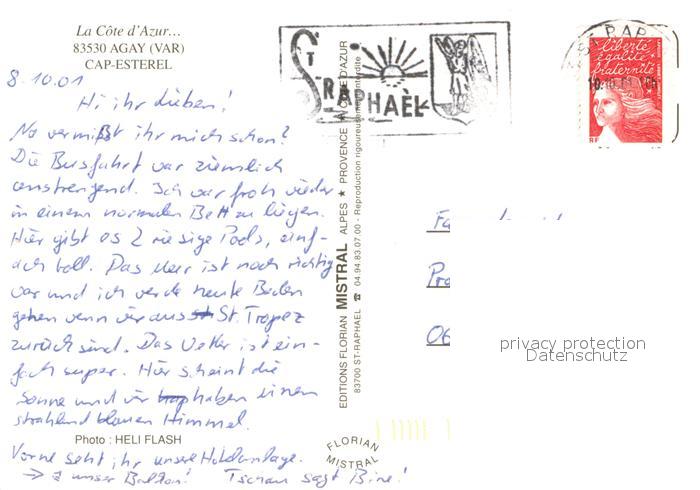 La Côte d'Azur...
83530 AGAY (VAR)
CAP-ESTEREL
8.10.01
Hi ihr Lieben!
Na vermißt ihr mich schon?
Die Busfahrt war ziemlich
anstrengend. Ich war froh wieder
in einem normalen Bett zu liegen.
Hier gibt es 2 riesige Pools, einf-
ach toll. Das Meer ist noch richtig
war und ich werde heute Baden
gehen wenn wir aus St. Tropez
zurück sind. Das Wetter ist ein-
fach super. Hier scheint die
Sonne und wir haben einen
strahlend blauen Himmel.
Photo : HELI FLASH
Vorne seht ihr unsere Hotelanlage.
→ unser Balkon! Tschau sagt Bine!
EDITIONS FLORIAN MISTRAL ALPES ★ PROVENCE ★ CÔTE D'AZUR
83700 ST-RAPHAEL ☎ 04.94.83.07.00 - Reproduction rigoureusement interdite
ST-RAPHAËL
liberté
égalité
fraternité
RF
Fa
06
privacy protection
Datenschutz
FLORIAN
MISTRAL